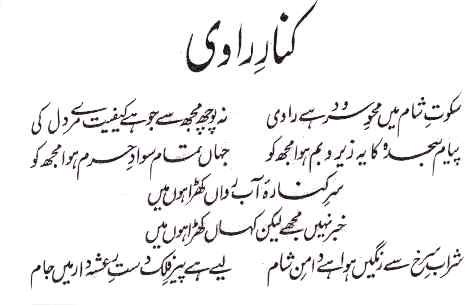 کنارِ راوی
سکوتِ شام میں محوِ سرود ہے راوی نہ پوچھ مجھ سے جو ہے کیفیت مرے دل کی
پیام سجدہ کا یہ زیر و بم ہوا مجھ کو جہاں تمام سوادِ حرم ہوا مجھ کو
سرِ کنارۂ آبِ رواں کھڑا ہوں میں
خبر نہیں مجھے لیکن کہاں کھڑا ہوں میں
شرابِ سرخ سے رنگیں ہوا ہے دامنِ شام لیے ہے پیرِ فلک دستِ رعشہ دار میں جام